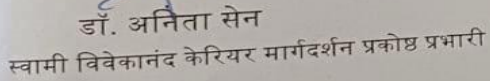 डॉ. अनिता सेन
स्वामी विवेकानंद केरियर मार्गदर्शन प्रकोष्ठ प्रभारी